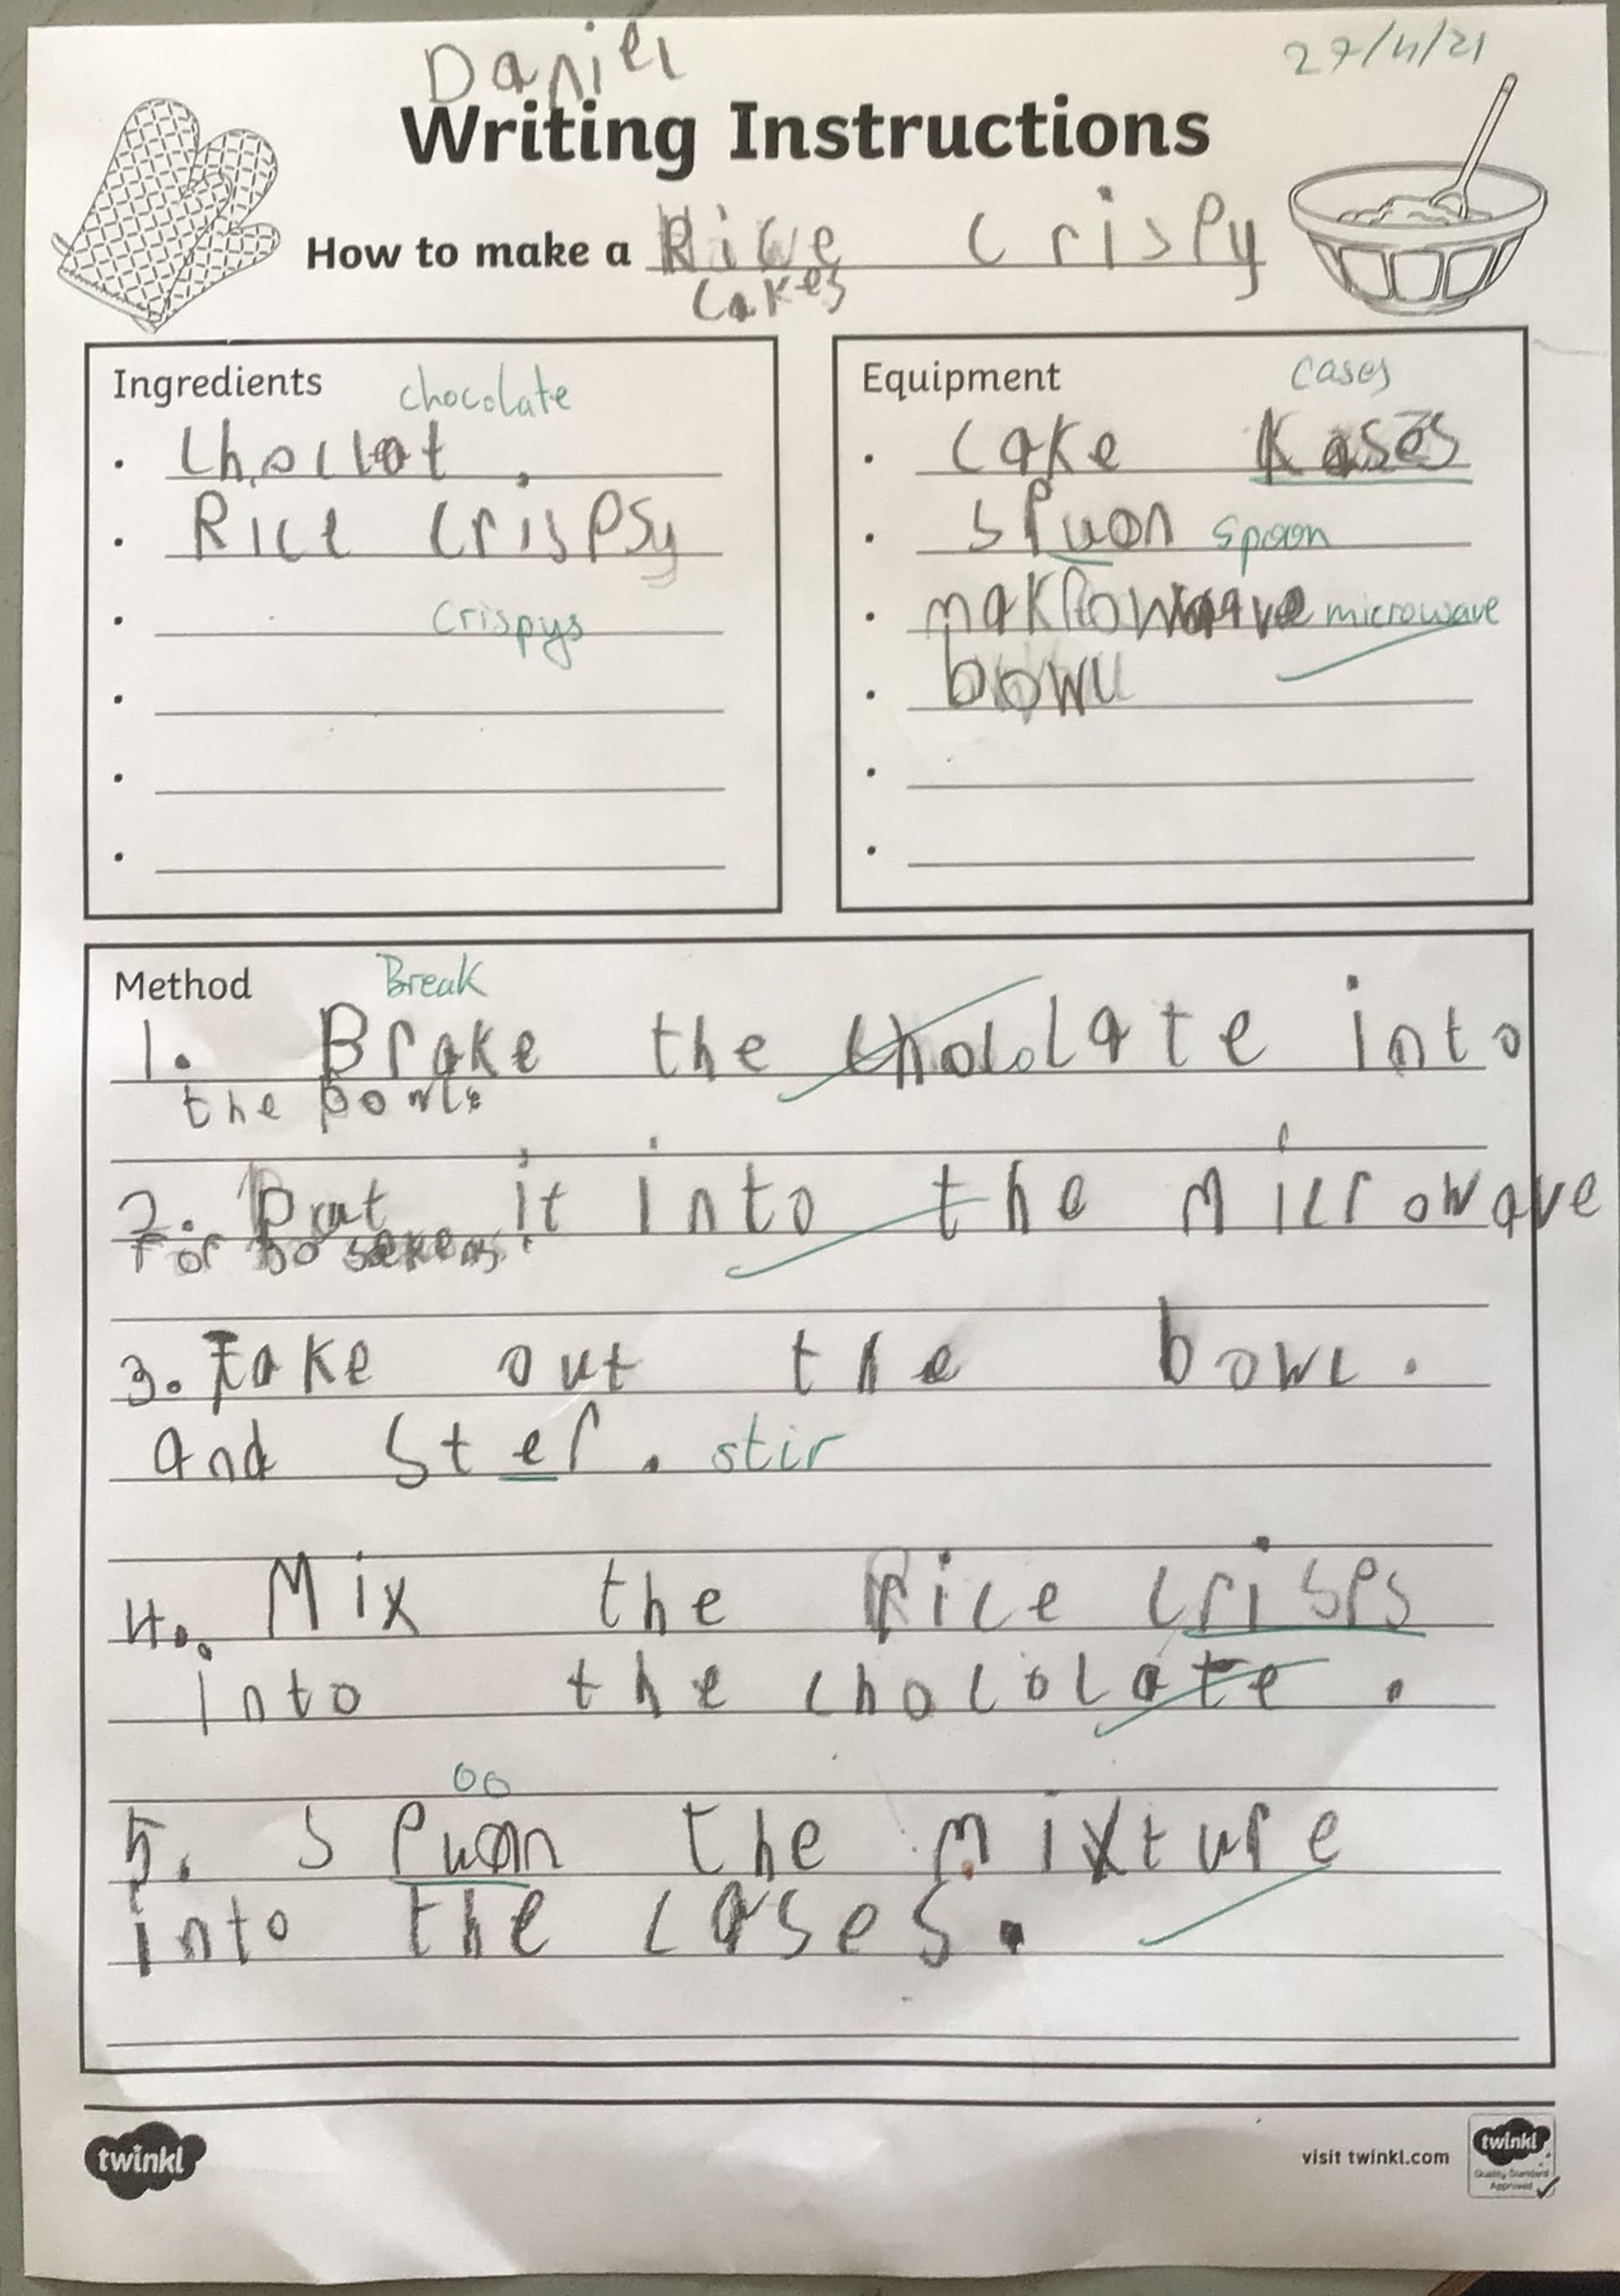 Daniel
27/11/21
Writing Instructions
How to make a Rice Crispy
Cakes
Ingredients chocolate
• Chocllot .
• Rice Crispsy
• crispys
•
•
•
Equipment cases
• cake Kases
• spuon spoon
• makrowave microwave
• bowl
•
•
Method Break
1. Brake the chocolate into
the bowl.
2. Put it into the Microwave
for sekens.
3. Take out the bowl .
and ster . stir
4. Mix the Rice crisps
into the chocolate .
oo
5. spuon the mixture
into the cases .
twinkl
visit twinkl.com
twinkl
Quality Standard
Approved